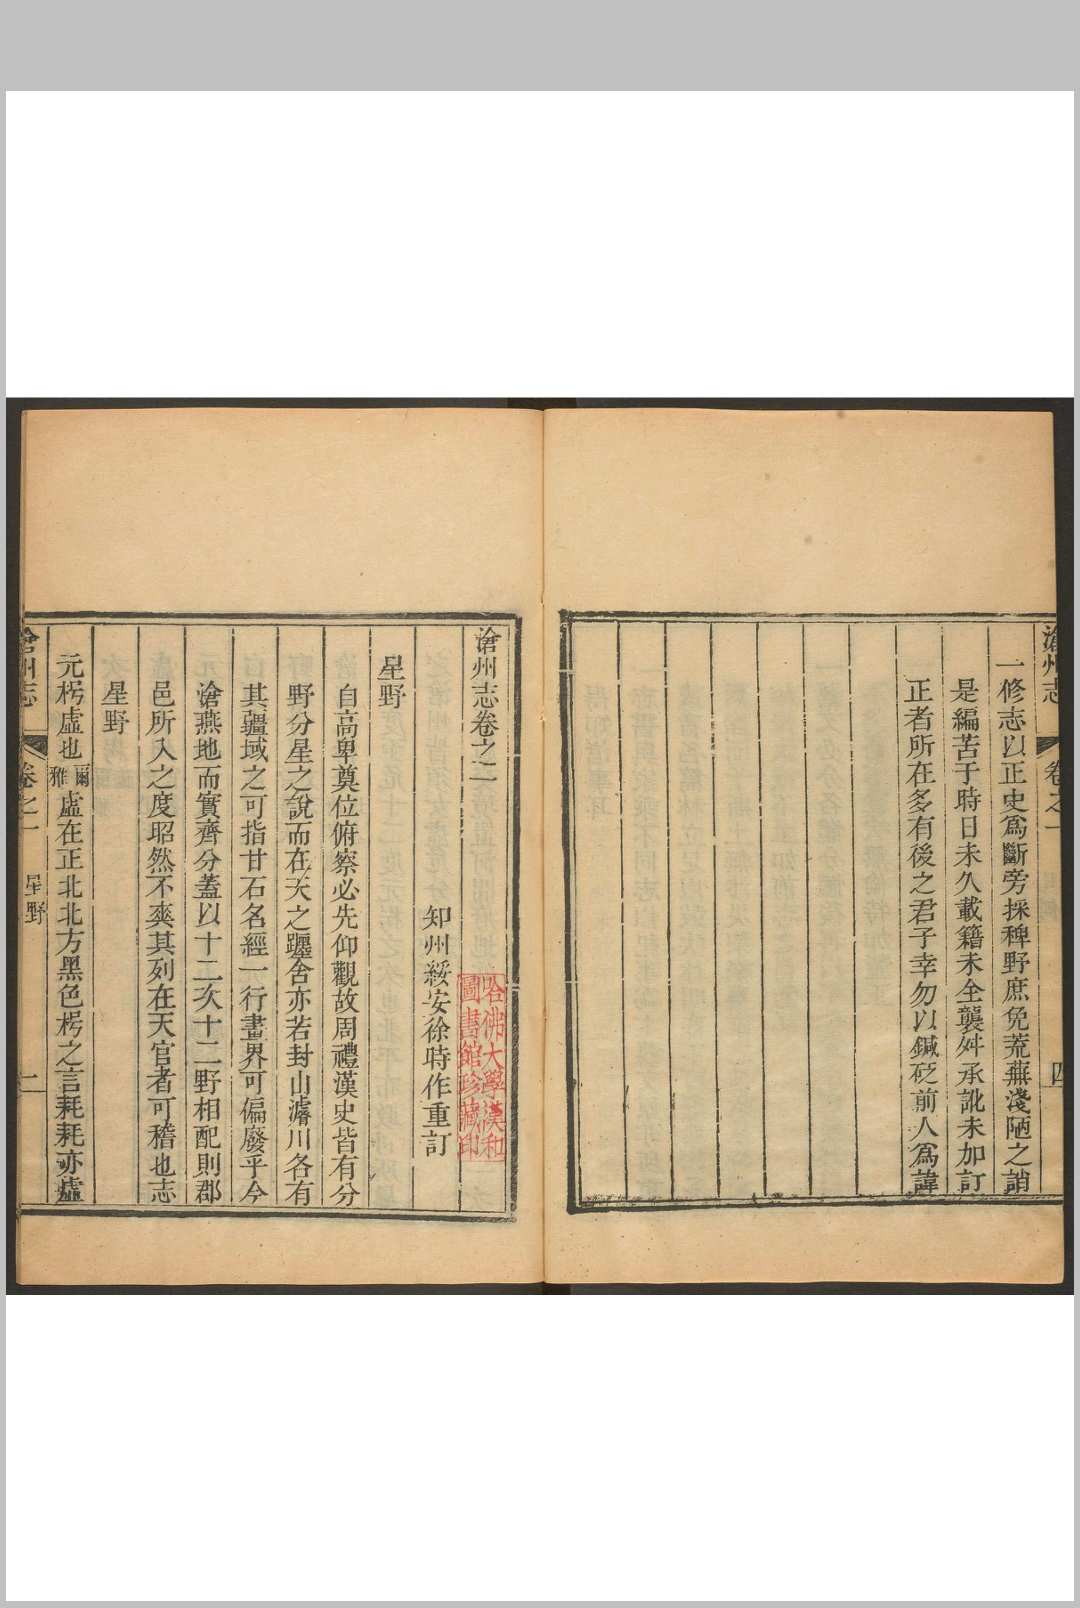 滄州志
卷之一
四
一修志以正史爲斷旁採稗野庶免荒蕪淺陋之誚
是編苦于時日未久載籍未全襲舛承訛未加訂
正者所在多有後之君子幸勿以鍼砭前人爲諱
滄州志卷之二
哈佛大學漢和
圖書館珍藏印
知州綏安徐時作重訂
星野
自高卑奠位俯察必先仰觀故周禮漢史皆有分
野分星之說而在天之躔舍亦若封山濬川各有
其疆域之可指甘石名經一行畫界可偏廢乎今
滄燕地而實齊分蓋以十二次十二野相配則郡
邑所入之度昭然不爽其列在天官者可稽也志
星野
元枵虛也爾雅虛在正北北方黑色枵之言耗耗亦虛
滄州志
卷之二
星野
一